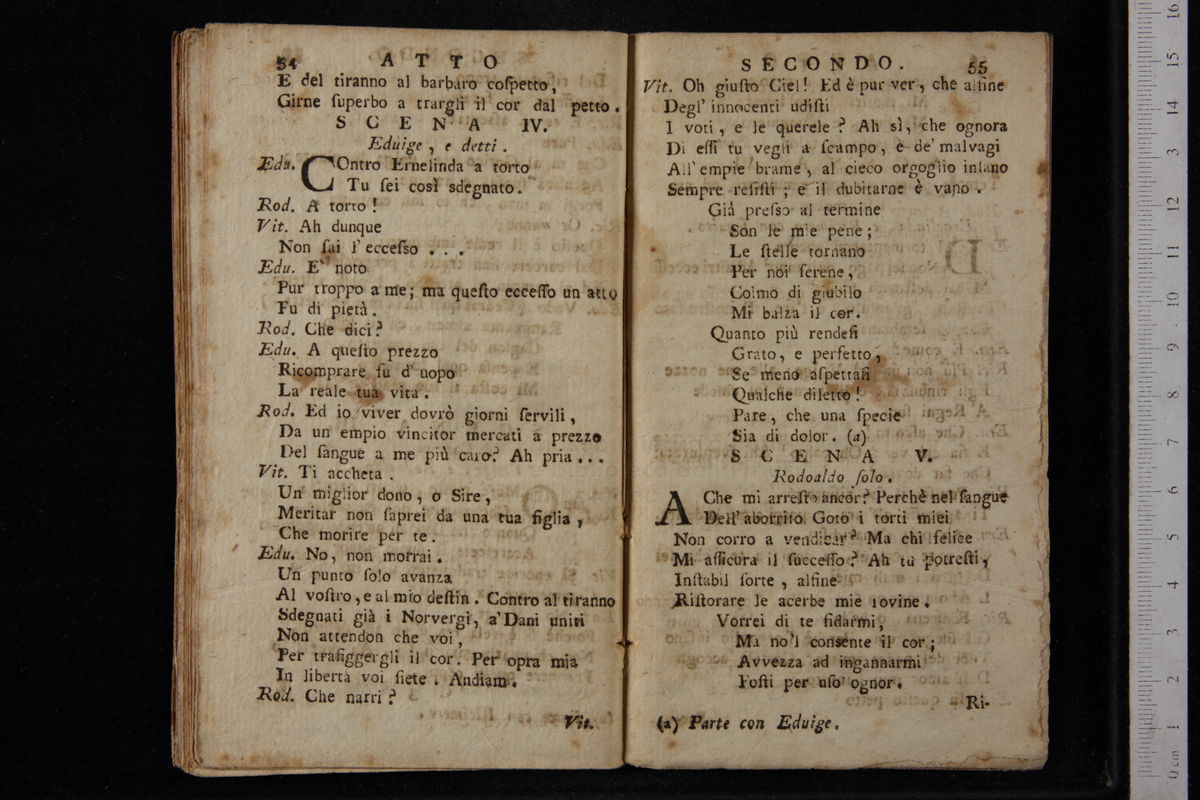 54 ATTO
E del tiranno al barbaro coſpetto,
Girne ſuperbo a trargli il cor dal petto.
SCENA IV.
Eduige, e detti.
Edu. COntro Ernelinda a torto
Tu ſei così sdegnato.
Rod. A torto!
Vit. Ah dunque
Non ſai l'ecceſso...
Edu. E' noto
Pur troppo a me; ma queſto ecceſſo un atto
Fu di pietà.
Rod. Che dici?
Edu. A queſto prezzo
Ricomprare fu d'uopo
La reale tua vita.
Rod. Ed io viver dovrò giorni ſervili,
Da un empio vincitor mercati a prezzo
Del ſangue a me più caro? Ah pria...
Vit. Ti accheta.
Un miglior dono, o Sire,
Meritar non ſaprei da una tua figlia,
Che morire per te.
Edu. No, non morrai.
Un punto ſolo avanza
Al voſtro, e al mio deſtin. Contro al tiranno
Sdegnati già i Norvergi, a' Dani uniti
Non attendon che voi,
Per trafiggergli il cor. Per opra mia
In libertà voi ſiete. Andiam.
Rod. Che narri?
Vit.
SECONDO. 55
Vit. Oh giuſto Ciel! Ed è pur ver, che alfine
Degl'innocenti udiſti
I voti, e le querele? Ah sì, che ognora
Di eſſi tu vegli a ſcampo, e de' malvagi
All'empie brame, al cieco orgoglio inſano
Sempre reſiſti; e il dubitarne è vano.
Già preſso al termine
Son le mie pene;
Le ſtelle tornano
Per noi ſerene,
Colmo di giubilo
Mi balza il cor.
Quanto più rendeſi
Grato, e perfetto,
Se meno aſpettaſi
Qualche diletto!
Pare, che una ſpecie
Sia di dolor. (a)
SCENA V.
Rodoaldo ſolo.
A Che mi arreſto ancor? Perchè nel ſangue
Dell'aborrito Goto i torti miei
Non corro a vendicar? Ma chi felice
Mi aſſicura il ſucceſſo? Ah tu potreſti,
Inſtabil ſorte, alfine
Riſtorare le acerbe mie rovine.
Vorrei di te fidarmi,
Ma no'l conſente il cor;
Avvezza ad ingannarmi
Foſti per uſo ognor.
Ri-
(a) Parte con Eduige.